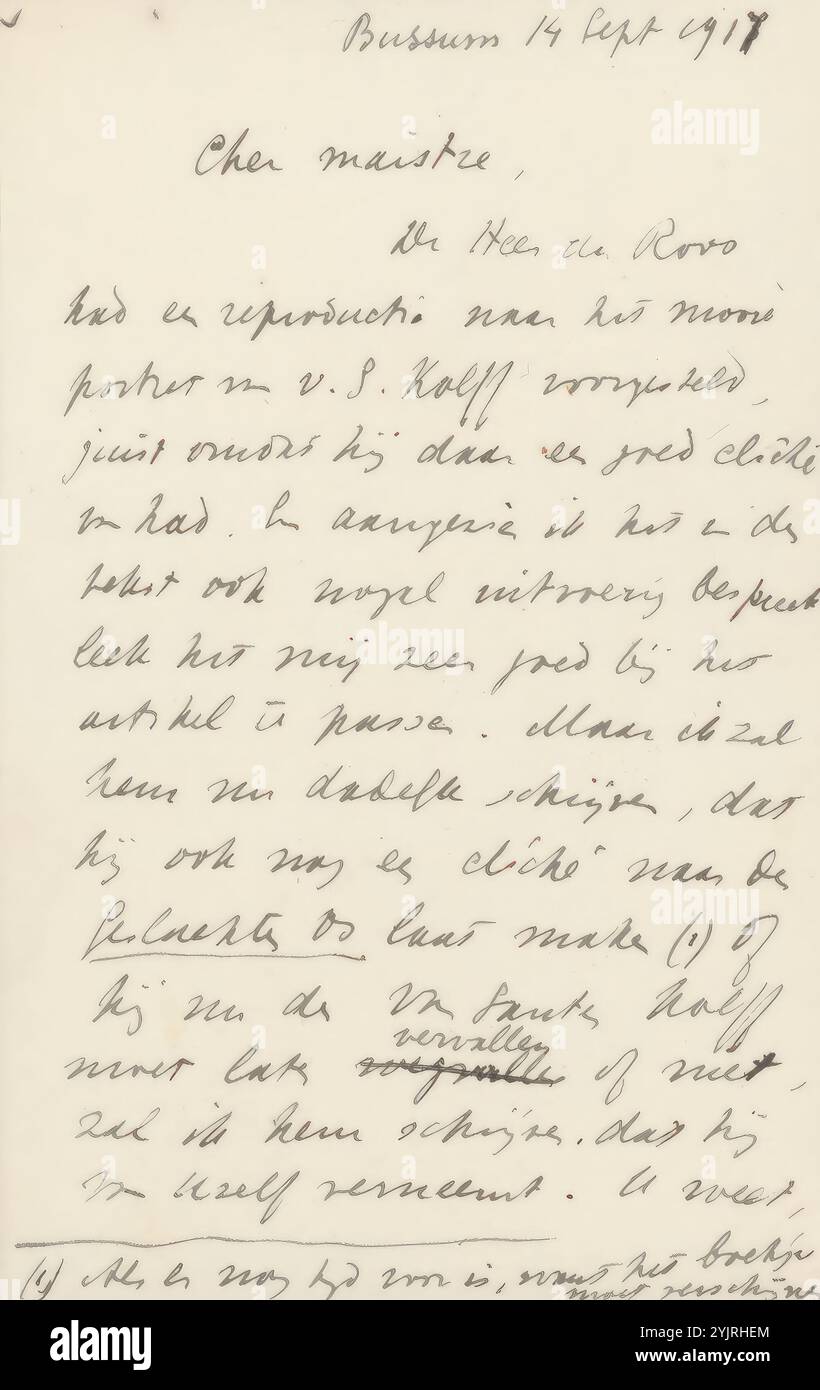 Bussum 14 Sept 1917
Cher maistre,
De Heer de Roos
had een reproductie naar het mooie
portret van v. S. Kolff voorgesteld,
juist omdat hij daar een goed cliché
van had. En aangezien ik het in den
tekst ook nogal uitvoerig bespreek
leek het mij zeer goed bij het
artikel te passen. Maar ik zal
hem nu dadelijk schrijven, dat
hij ook nog een cliché naar den
Geslachten Os laat maken (1) of
hij nu den Van Santen Kolff
vervallen
moet laten wegvallen of niet,
zal ik hem schrijven, dat hij
van Uzelf verneemt. U weet,
(1) Als er nog tijd voor is, want het boekje
moet verschijnen
alamy
Image ID: 2YJRHEM
www.alamy.com